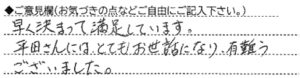 ◆ご意見欄(お気づきの点などご自由にご記入下さい。)
早く決まって満足しています。
平田さんには、とてもお世話になり、有難う
ございました。